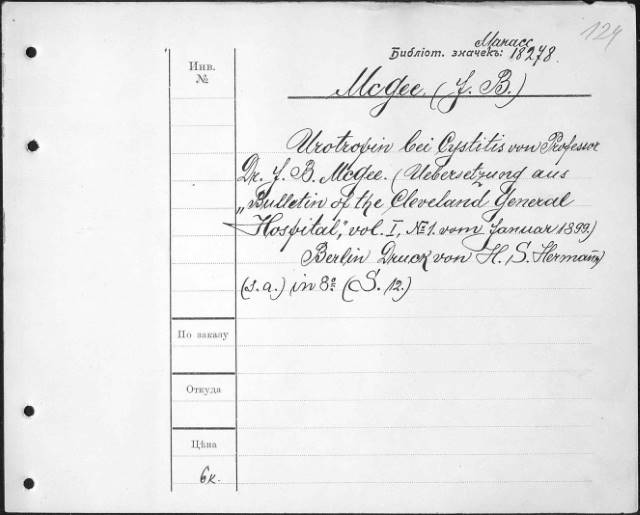 124
Манасс
Библіот. значекъ: 18278.
Инв.
№
McGee. (J. B.)
Urotropin bei Cystitis von Professor
Dr. J. B. McGee. (Uebersetzung aus
„Bulletin of the Cleveland General
Hospital", vol. I, №1. vom Januar 1899.)
Berlin Druck von H. S. Hermann
(s. a.) in 8º (S. 12.)
По заказу
Откуда
Цѣна
6к.